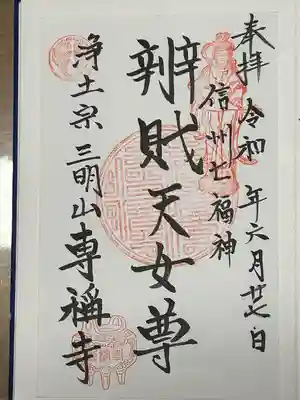 奉拝 令和 年六月廿七日
信州七福神
辨財天女尊
浄土宗 三明山 専稱寺